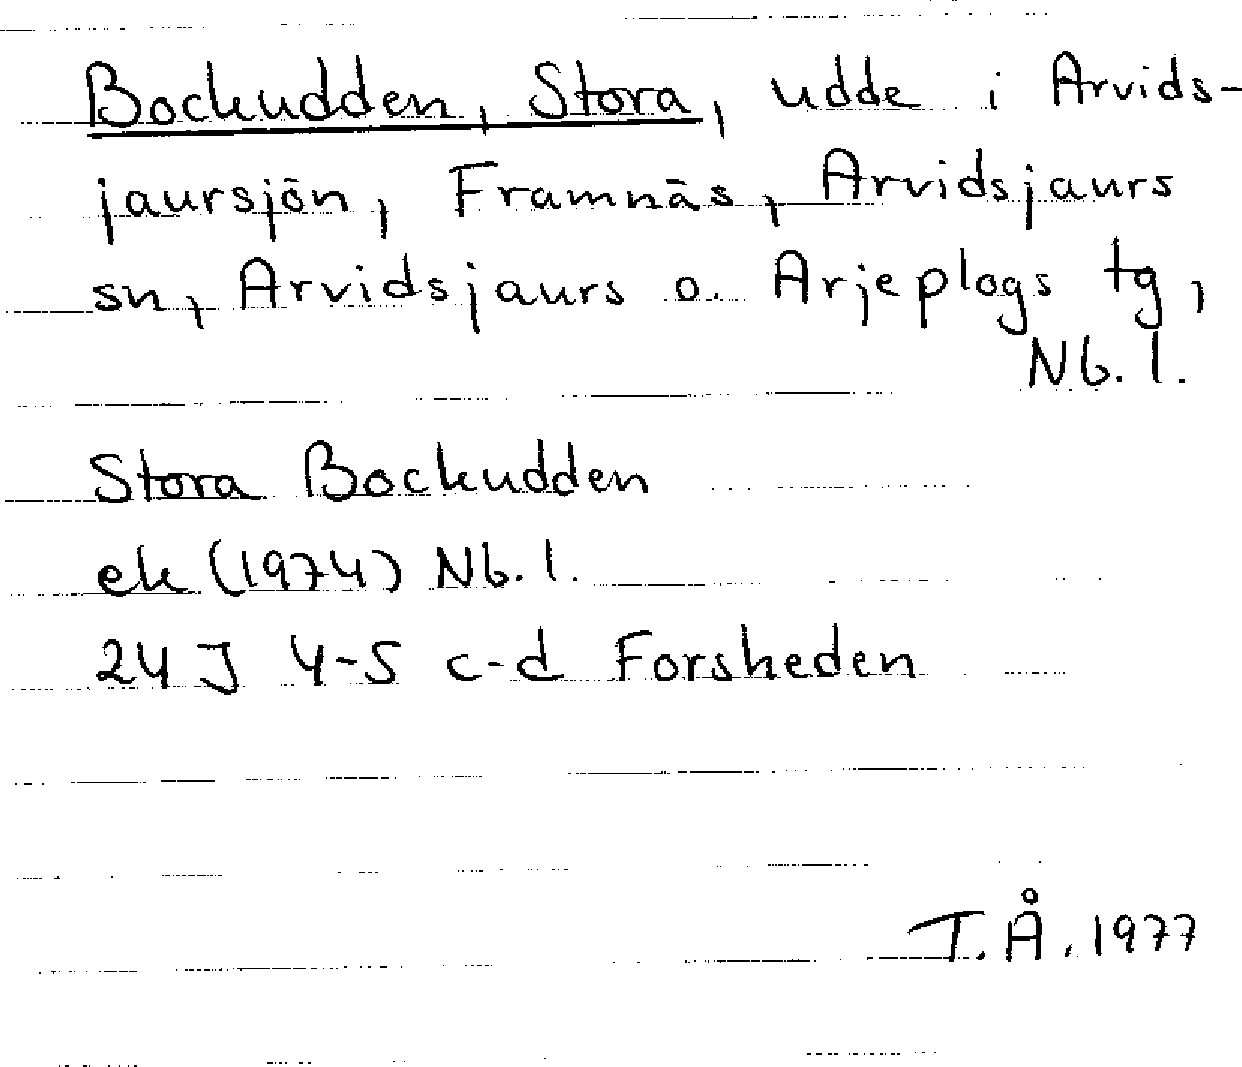 Bockudden, Stora, udde i Arvids-
jaursjön, Framnäs, Arvidsjaurs
sn, Arvidsjaurs o. Arjeplogs tg,
Nb. l.
Stora Bockudden
ek (1974) Nb. l.
24 J 4-5 c-d Forsheden
T. Å. 1977